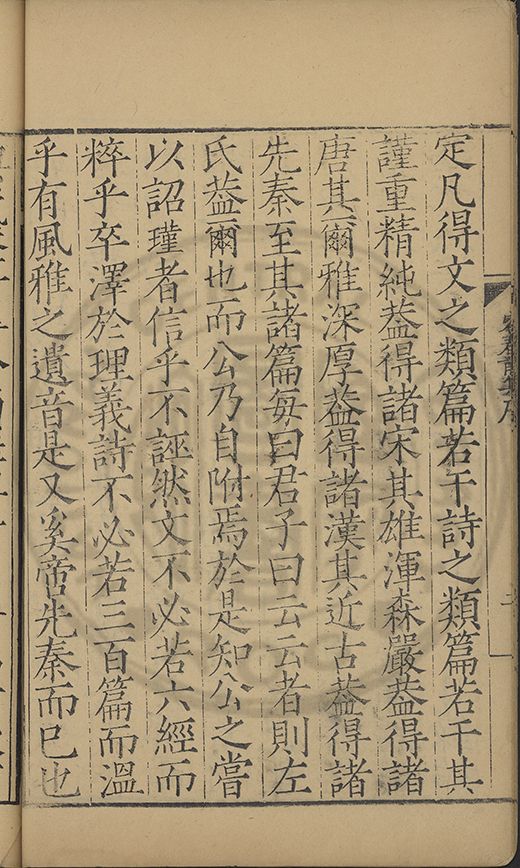 定凡得文之類篇若干詩之類篇若干其
謹重精純葢得諸宋其雄渾森嚴葢得諸
唐其爾雅深厚葢得諸漢其近古葢得諸
先秦至其諸篇每曰君子曰云云者則左
氏葢爾也而公乃自附焉於是知公之嘗
以詔瑾者信乎不誣然文不必若六經而
粹乎卒澤於理義詩不必若三百篇而溫
乎有風雅之遺音是又奚啻先秦而已也